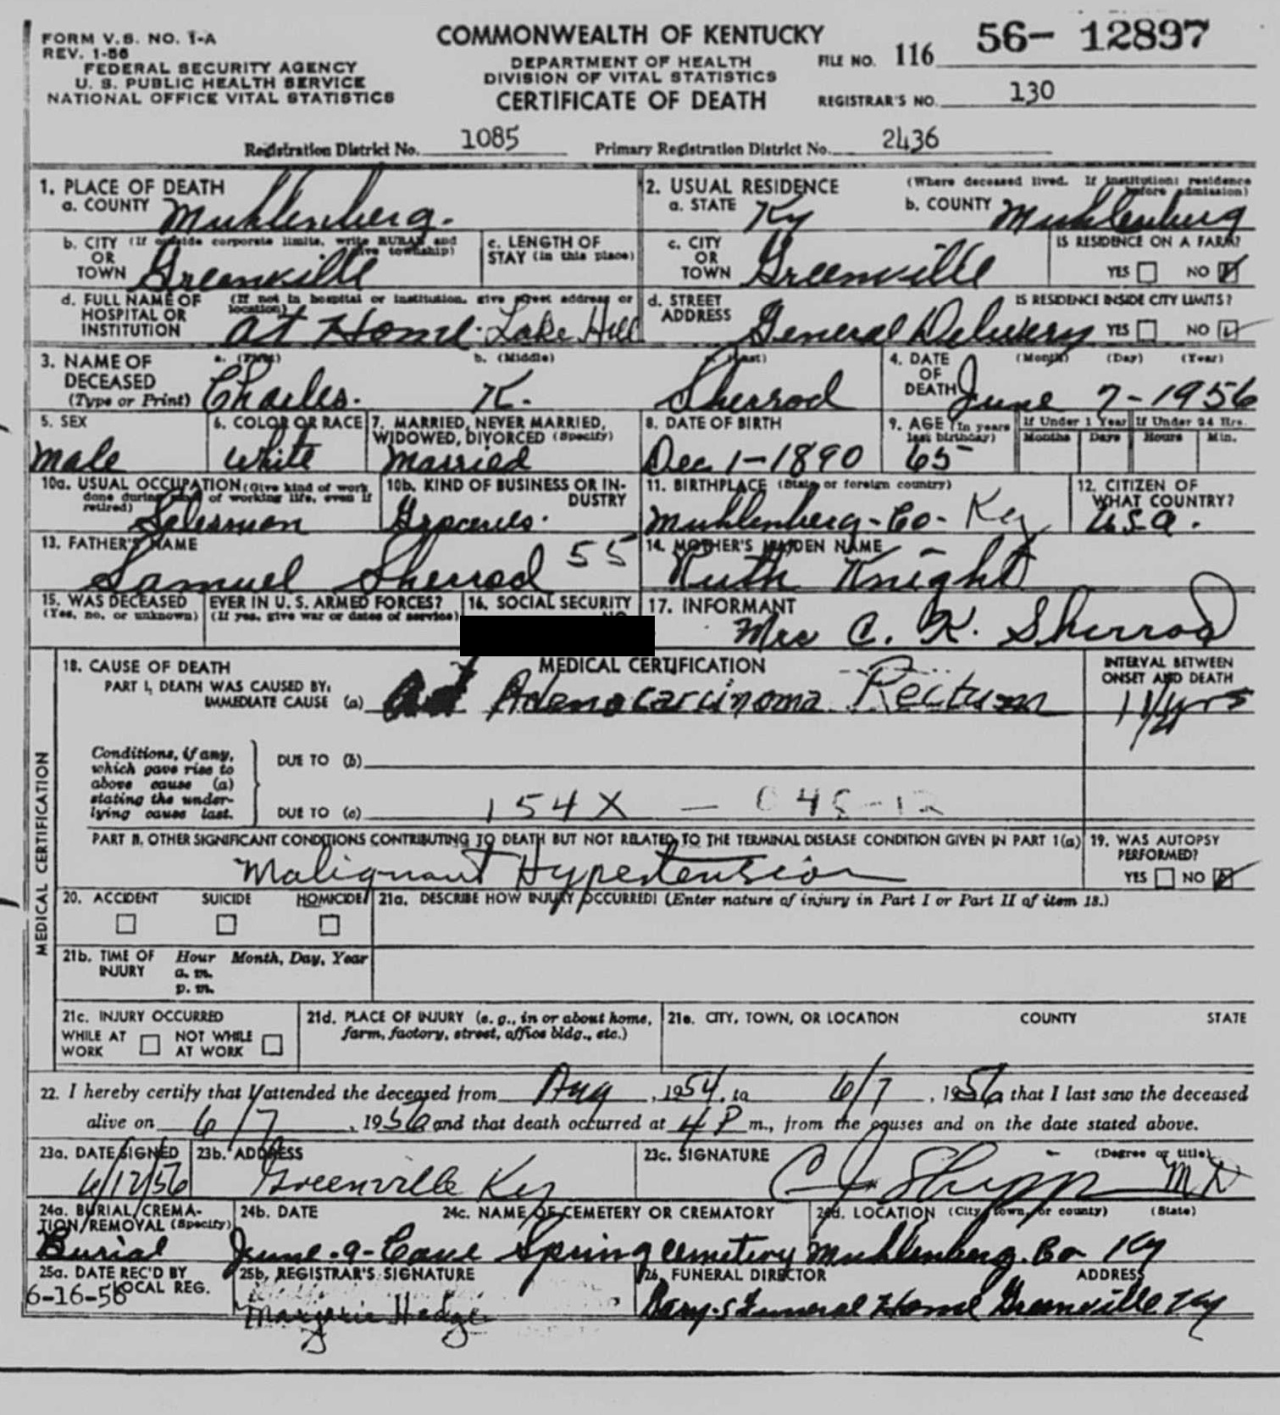 FORM V.S. NO. 1-A
REV. 1-56
FEDERAL SECURITY AGENCY
U. S. PUBLIC HEALTH SERVICE
NATIONAL OFFICE VITAL STATISTICS
COMMONWEALTH OF KENTUCKY
DEPARTMENT OF HEALTH
DIVISION OF VITAL STATISTICS
CERTIFICATE OF DEATH
FILE NO. 116 56- 12897
REGISTRAR'S NO. 130
Registration District No. 1085 Primary Registration District No. 2436
1. PLACE OF DEATH
a. COUNTY Muhlenberg.
2. USUAL RESIDENCE (Where deceased lived. If institution: residence before admission)
a. STATE Ky b. COUNTY Muhlenberg
b. CITY OR TOWN (If outside corporate limits, write RURAL and give township) Greenville
c. LENGTH OF STAY (in this place)
c. CITY OR TOWN Greenville
IS RESIDENCE ON A FARM?
YES NO
d. FULL NAME OF HOSPITAL OR INSTITUTION (If not in hospital or institution, give street address or location) at Home. Lake Hill
d. STREET ADDRESS General Delivery
IS RESIDENCE INSIDE CITY LIMITS?
YES NO
3. NAME OF DECEASED (Type or Print)
a. (First) Charles. b. (Middle) K. c. (Last) Sherrod
4. DATE OF DEATH (Month) (Day) (Year) June 7-1956
5. SEX Male
6. COLOR OR RACE White
7. MARRIED, NEVER MARRIED, WIDOWED, DIVORCED (Specify) Married
8. DATE OF BIRTH Dec 1-1890
9. AGE (In years last birthday) 65
If Under 1 Year Months Days
If Under 24 Hrs. Hours Min.
10a. USUAL OCCUPATION (Give kind of work done during most of working life, even if retired) Salesman
10b. KIND OF BUSINESS OR INDUSTRY Groceries.
11. BIRTHPLACE (State or foreign country) Muhlenberg-Co- Ky
12. CITIZEN OF WHAT COUNTRY? U.S.A.
13. FATHER'S NAME Samuel Sherrod 55
14. MOTHER'S MAIDEN NAME Ruth Knight
15. WAS DECEASED EVER IN U. S. ARMED FORCES?
(Yes, no, or unknown) (If yes, give war or dates of service)
16. SOCIAL SECURITY NO.
17. INFORMANT Mrs C. K. Sherrod
MEDICAL CERTIFICATION
18. CAUSE OF DEATH
MEDICAL CERTIFICATION
PART I, DEATH WAS CAUSED BY:
IMMEDIATE CAUSE (a) Adenocarcinoma Rectum
INTERVAL BETWEEN ONSET AND DEATH
Conditions, if any, which gave rise to above cause (a) stating the underlying cause last.
DUE TO (b)
DUE TO (c) 154X
PART II. OTHER SIGNIFICANT CONDITIONS CONTRIBUTING TO DEATH BUT NOT RELATED TO THE TERMINAL DISEASE CONDITION GIVEN IN PART 1(a)
Malignant Hypertension
19. WAS AUTOPSY PERFORMED?
YES NO
20. ACCIDENT SUICIDE HOMICIDE
21a. DESCRIBE HOW INJURY OCCURRED! (Enter nature of injury in Part I or Part II of item 18.)
21b. TIME OF INJURY Hour Month, Day, Year
a. m.
p. m.
21c. INJURY OCCURRED
WHILE AT WORK NOT WHILE AT WORK
21d. PLACE OF INJURY (e. g., in or about home, farm, factory, street, office bldg., etc.)
21e. CITY, TOWN, OR LOCATION COUNTY STATE
22. I hereby certify that I attended the deceased from Aug, 1954, to 6/7, 1956 that I last saw the deceased
alive on 6/7, 1956 and that death occurred at 4 P m., from the causes and on the date stated above.
23a. DATE SIGNED 6/12/56
23b. ADDRESS Greenville Ky
23c. SIGNATURE (Degree or title) C J Shipp MD
24a. BURIAL, CREMATION, REMOVAL (Specify) Burial
24b. DATE June-9-
24c. NAME OF CEMETERY OR CREMATORY Cave Spring cemetery
24d. LOCATION (City, town, or county) (State) Muhlenberg. Co Ky
25a. DATE REC'D BY LOCAL REG. 6-16-56
25b. REGISTRAR'S SIGNATURE Marjorie Hedge
26. FUNERAL DIRECTOR ADDRESS
Gary's Funeral Home Greenville Ky